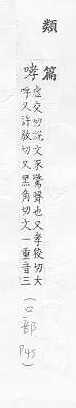 類篇
哮
虛交切說文豕驚聲也又孝狡切大
呼又許教切又黑角切文一重音三(口部 P45)